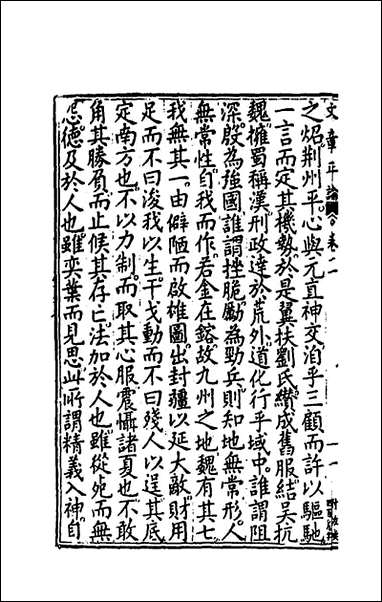 之炤荆州平心與元直神交洎乎三顧而許以驅馳
一言而定其機勢於是翼扶劉氏纘成舊服結吴抗
魏擁蜀稱漢刑政達於荒外道化行乎域中誰謂阻
深殷為强國誰謂挫脆勵為勁兵則知地無常形人
無常性自我而作若金在鎔故九州之地魏有其七
我無其一由僻陋而啟雄圖出封疆以延大敵財用
足而不曰浚我以生干戈動而不曰殘人以逞其底
定南方也不以力制而取其心服震懾諸夏也不敢
角其勝負而止候其存亡法加於人也雖從死而無
怨德及於人也雖奕葉而見思此所謂精義入神自
文章平論 卷二